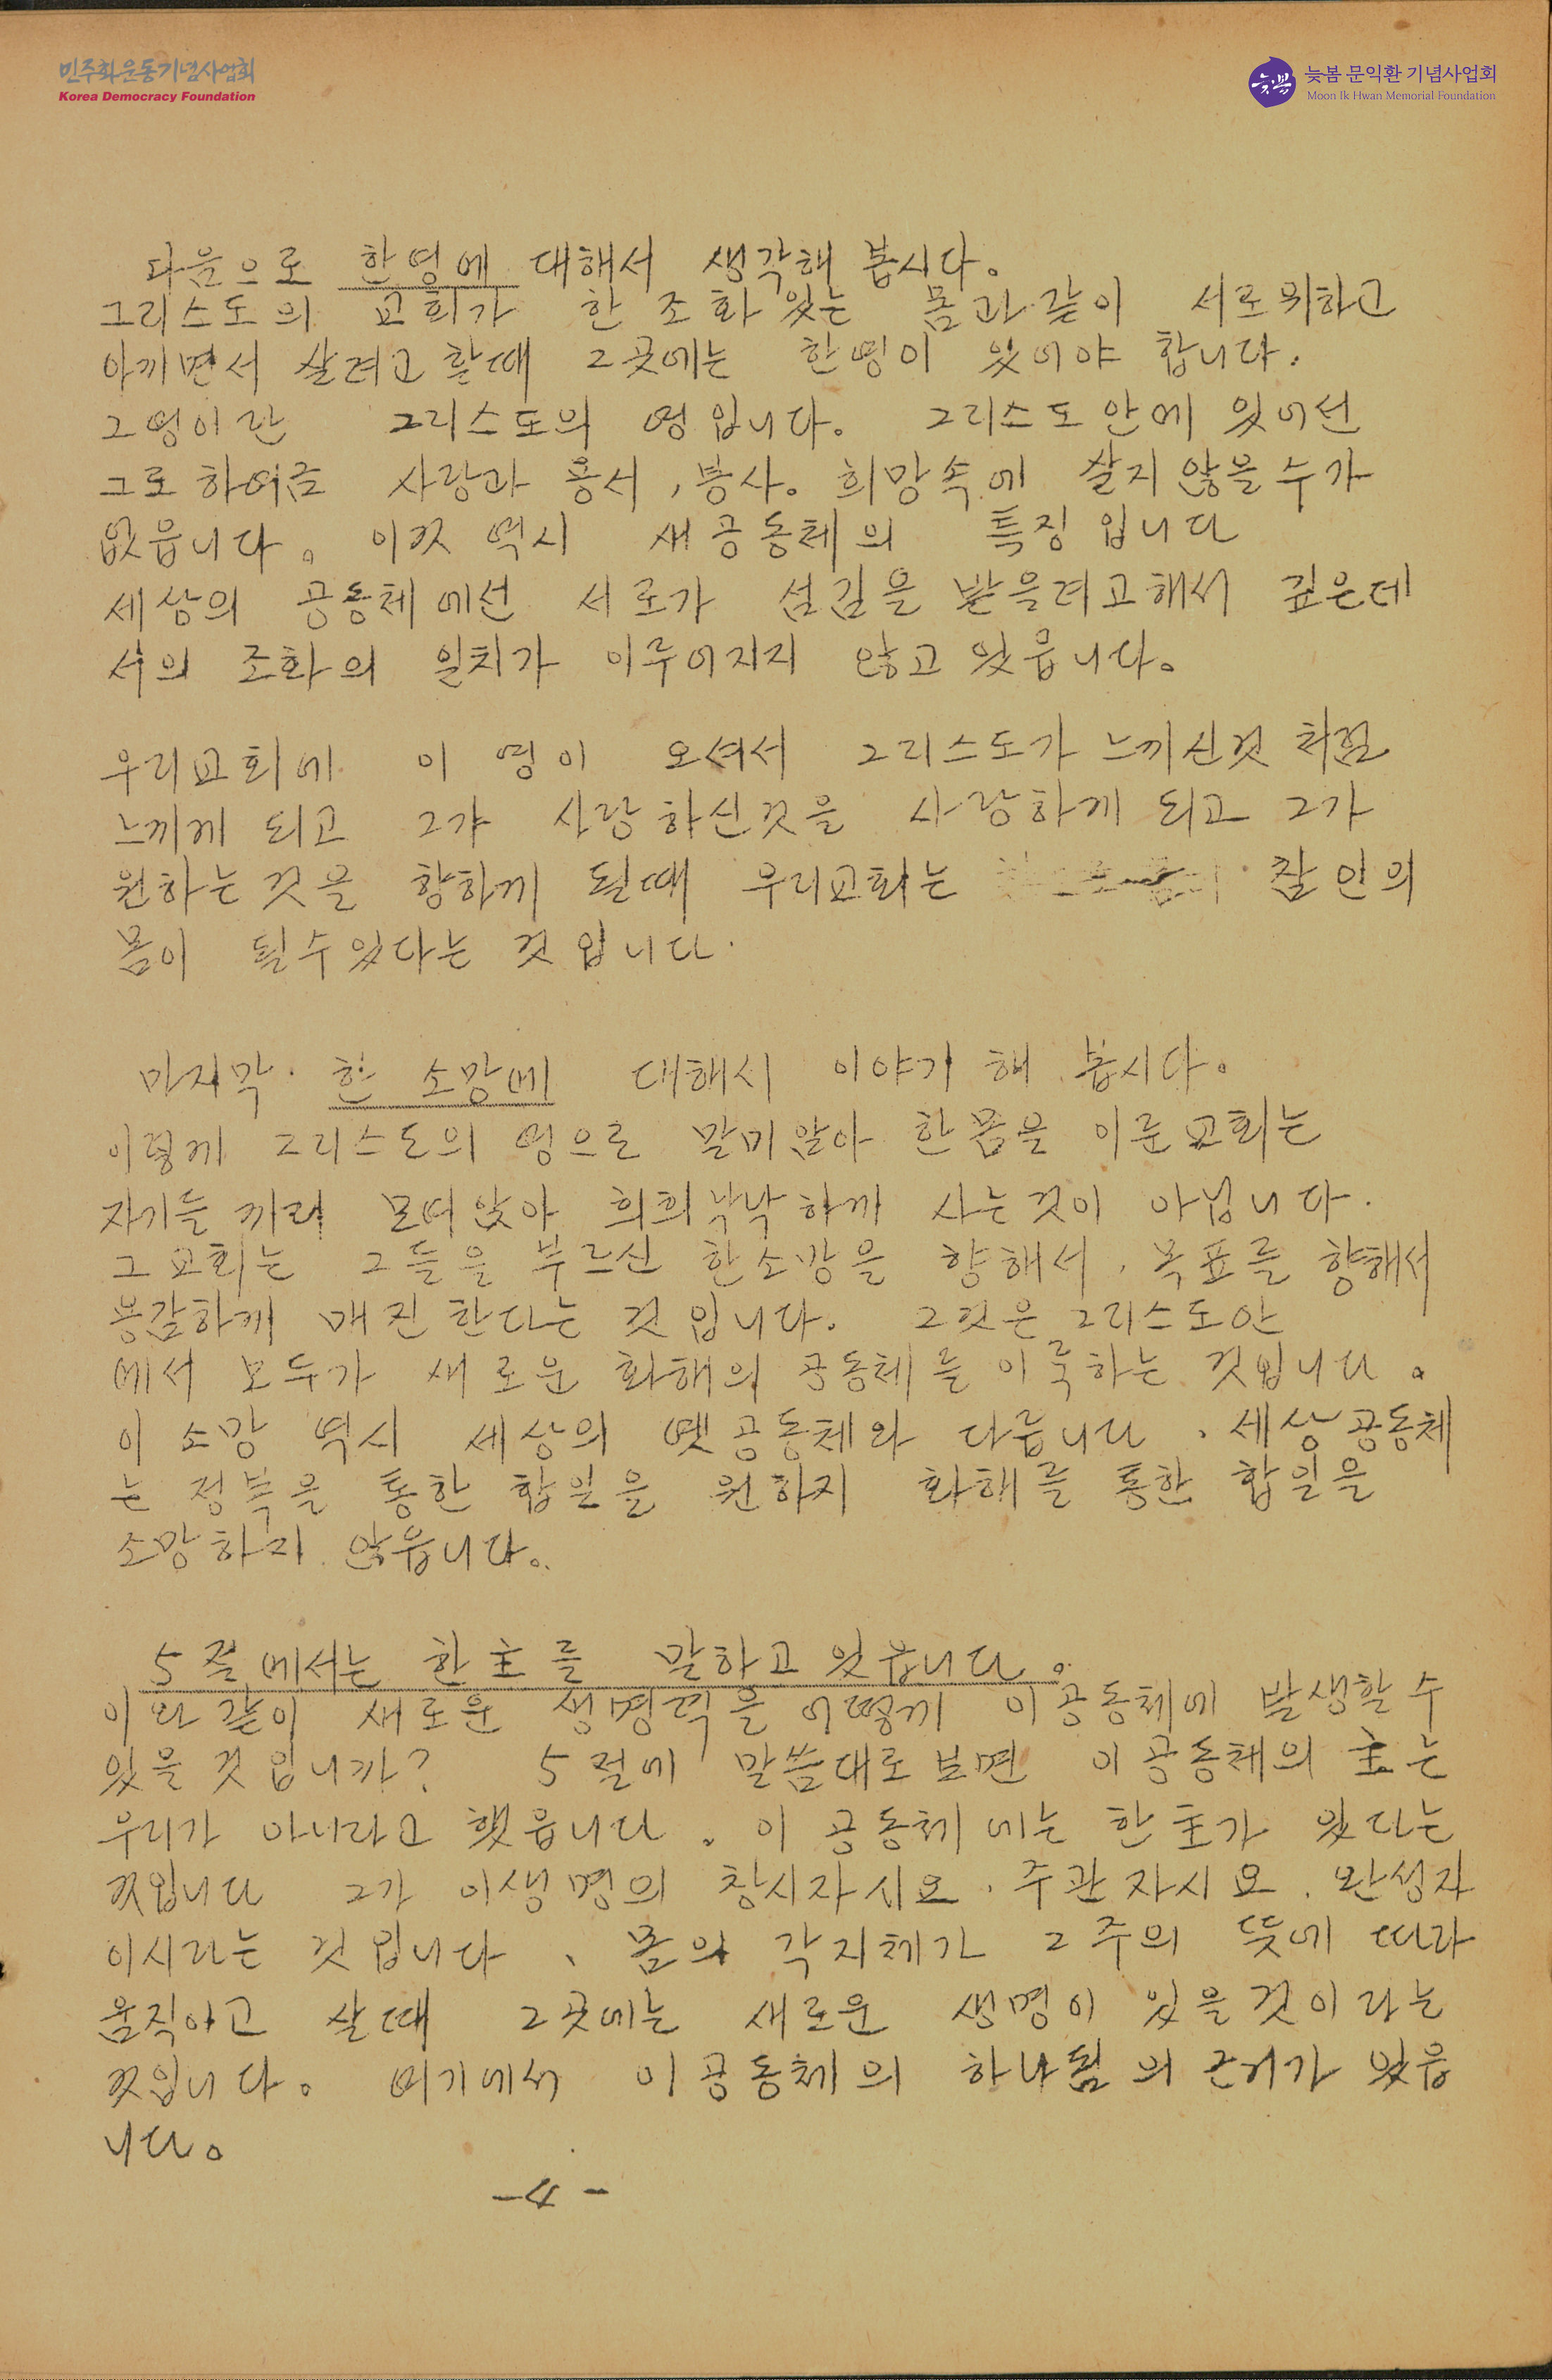 민주화운동기념사업회
Korea Democracy Foundation
늦봄
늦봄 문익환 기념사업회
Moon Ik Hwan Memorial Foundation
다음으로 한영에 대해서 생각해 봅시다。
그리스도의 교회가 한 조화 있는 몸과 같이 서로 위하고
아끼면서 살려고 할때 그곳에는 한영이 있어야 합니다.
그영이란 그리스도의 영입니다。 그리스도 안에 있어선
그로 하여금 사랑과 용서, 봉사。 희망속에 살지 않을 수가
없읍니다。 이것 역시 새공동체의 특징 입니다
세상의 공동체에선 서로가 섬김을 받을려고해서 깊은데
서의 조화의 일치가 이루어지지 않고 있읍니다。
우리교회에 이 영이 오셔서 그리스도가 느끼신것 처럼
느끼게 되고 그가 사랑하신것을 사랑하게 되고 그가
원하는 것을 향하게 될때 우리교회는 참 인의
몸이 될수있다는 것 입니다.
마지막. 한 소망에 대해서 이야기 해 봅시다.
이렇게 그리스도의 영으로 말미암아 한몸을 이룬교회는
자기들 끼리 모여앉아 희희낙낙하게 사는것이 아닙니다.
그 교회는 그들을 부르신 한소망을 향해서, 목표를 향해서
용감하게 매진한다는 것 입니다. 그것은 그리스도안
에서 모두가 새로운 화해의 공동체를 이룩하는 것입니다。
이 소망 역시 세상의 옛공동체와 다릅니다. 세상공동체
는 정복을 통한 합일을 원하지 화해를 통한 합일을
소망하지 않읍니다。
5절에서는 한主를 말하고 있읍니다。
이와 같이 새로운 생명력을 어떻게 이공동체에 발생할 수
있을 것입니까? 5절에 말씀대로 보면 이 공동체의 主는
우리가 아니라고 했읍니다。 이 공동체에는 한主가 있다는
것입니다 그가 이생명의 창시자시요. 주관자시요. 완성자
이시라는 것입니다、 몸의 각지체가 그 주의 뜻에 따라
움직이고 살때 그곳에는 새로운 생명이 있을것이라는
것입니다。 여기에서 이공동체의 하나됨의 근거가 있읍
니다。
-4-